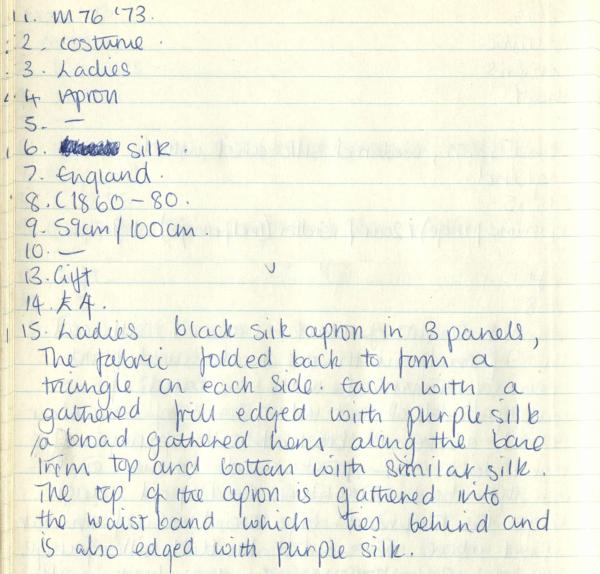 1. M76 '73.
2. Costume.
3. Ladies
4. Apron
5. —
6. silk.
7. England.
8. C1860-80.
9. 59cm/100cm.
10. —
13. Gift
14. £4.
15. Ladies black silk apron in 3 panels,
The fabric folded back to form a
triangle on each side. Each with a
gathered frill edged with purple silk
a broad gathered hem along the base
trim top and bottom with similar silk.
The top of the apron is gathered into
the waist band which ties behind and
is also edged with purple silk.